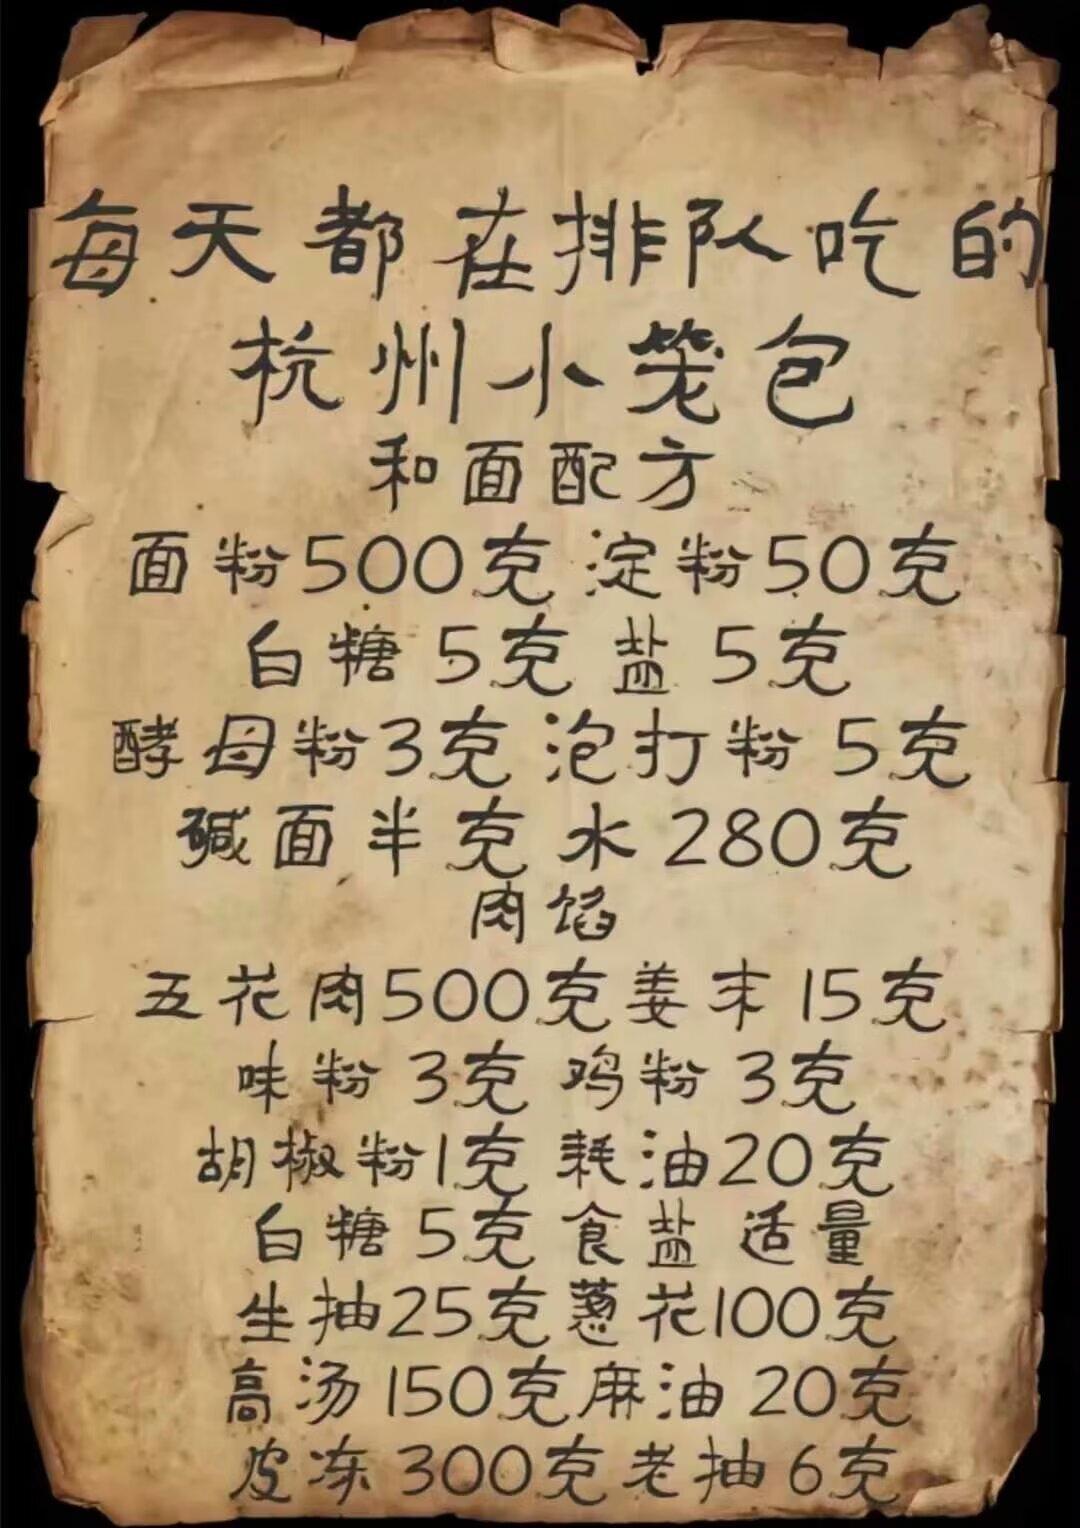 每天都在排队吃的
杭州小笼包
和面配方
面粉500克 淀粉50克
白糖 5克 盐 5克
酵母粉3克 泡打粉 5克
碱面半克 水 280克
肉馅
五花肉500克姜末 15克
味粉 3克 鸡粉 3克
胡椒粉1克 耗油20克
白糖 5克 食盐 适量
生抽25克葱花100克
高汤 150克麻油 20克
皮冻 300克老抽 6克